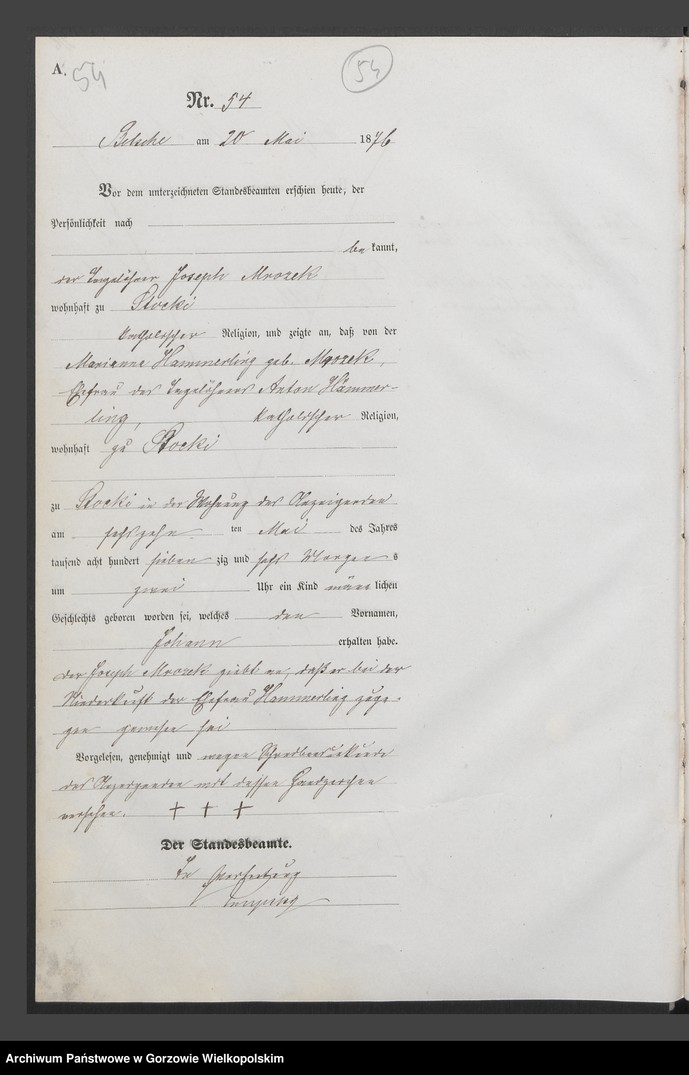 A. 54
54
Nr. 54
Betsche am 20 Mai 1876
Vor dem unterzeichneten Standesbeamten erschien heute, der
Persönlichkeit nach
be kannt,
der Tagelöhner Joseph Mrozek
wohnhaft zu Stocki
katholischer Religion, und zeigte an, daß von der
Marianna Hammerling geb. Mrozek,
Ehefrau des Tagelöhners Anton Hämmer-
ling, katholischer Religion,
wohnhaft zu Stocki
zu Stocki in der Wohnung des Anzeigenden
am sechszehn ten Mai des Jahres
tausend acht hundert sieben zig und sechs Morgen s
um zwei Uhr ein Kind männ lichen
Geschlechts geboren worden sei, welches den Vornamen,
Johann erhalten habe.
Der Joseph Mrozek giebt an, daß er bei der
Niederkunft der Ehefrau Hammerling zuge-
gen gewesen sei
Vorgelesen, genehmigt und wegen Schreibensunkunde
des Anzeigenden mit dessen Handzeichen
versehen. + + +
Der Standesbeamte.
In Vertretung
Archiwum Państwowe w Gorzowie Wielkopolskim